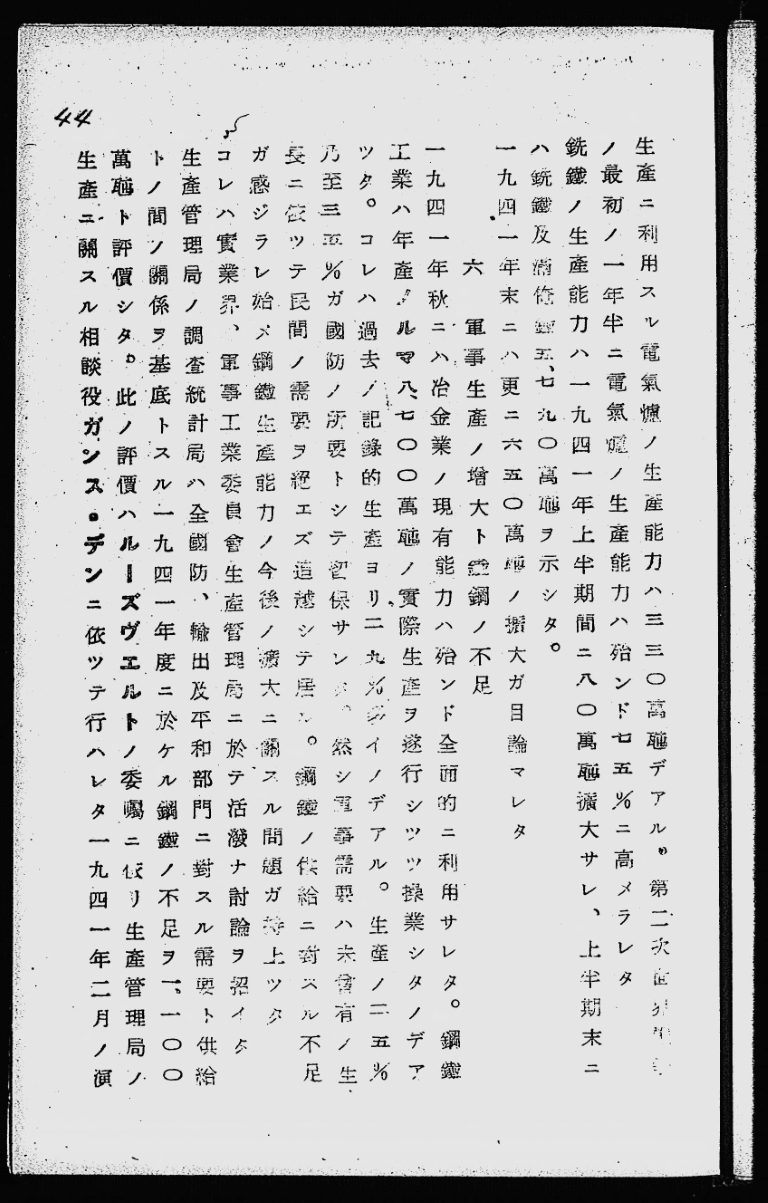 44
生產ニ利用スル電氣爐ノ生產能力ハ三三〇萬瓲デアル。第二次世界
ノ最初ノ一年半ニ電氣爐ノ生產能力ハ殆ンド七五％ニ高メラレタ
銑鐵ノ生產能力ハ一九四一年上半期間ニ八〇萬瓲擴大サレ、上半期末ニ
ハ銑鐵及滿俺鐵五、七九〇萬瓲ヲ示シタ。
一九四一年末ニハ更ニ六五〇萬瓲ノ擴大ガ目論マレタ
六　軍事生產ノ增大ト鐵鋼ノ不足
一九四一年秋ニハ冶金業ノ現有能力ハ殆ンド全面的ニ利用サレタ。鋼鐵
工業ハ年產ノルマ八、七〇〇萬瓲ノ實際生產ヲ遂行シツツ操業シタノデア
ツタ。コレハ過去ノ記錄的生產ヨリ二九％多イノデアル。生產ノ二五％
乃至三五％ガ國防ノ所要トシテ留保サレタ。然シ軍事需要ハ未曾有ノ生
長ニ依ツテ民間ノ需要ヲ絕エズ追越シテ居ル。鋼鐵ノ供給ニ對スル不足
ガ感ジラレ始メ鋼鐵生產能力ノ今後ノ擴大ニ關スル問題ガ持上ツタ
コレハ實業界、軍事工業委員會生產管理局ニ於テ活潑ナ討論ヲ招イタ
生產管理局ノ調査統計局ハ全國防、輸出及平和部門ニ對スル需要ト供給
トノ間ノ關係ヲ基底トスル一九四一年度ニ於ケル鋼鐵ノ不足ヲ一、一〇〇
萬瓲ト評價シタ。此ノ評價ハルーズヴエルトノ委囑ニ依リ生產管理局ノ
生產ニ關スル相談役ガンス。デンニ依ツテ行ハレタ一九四一年二月ノ演